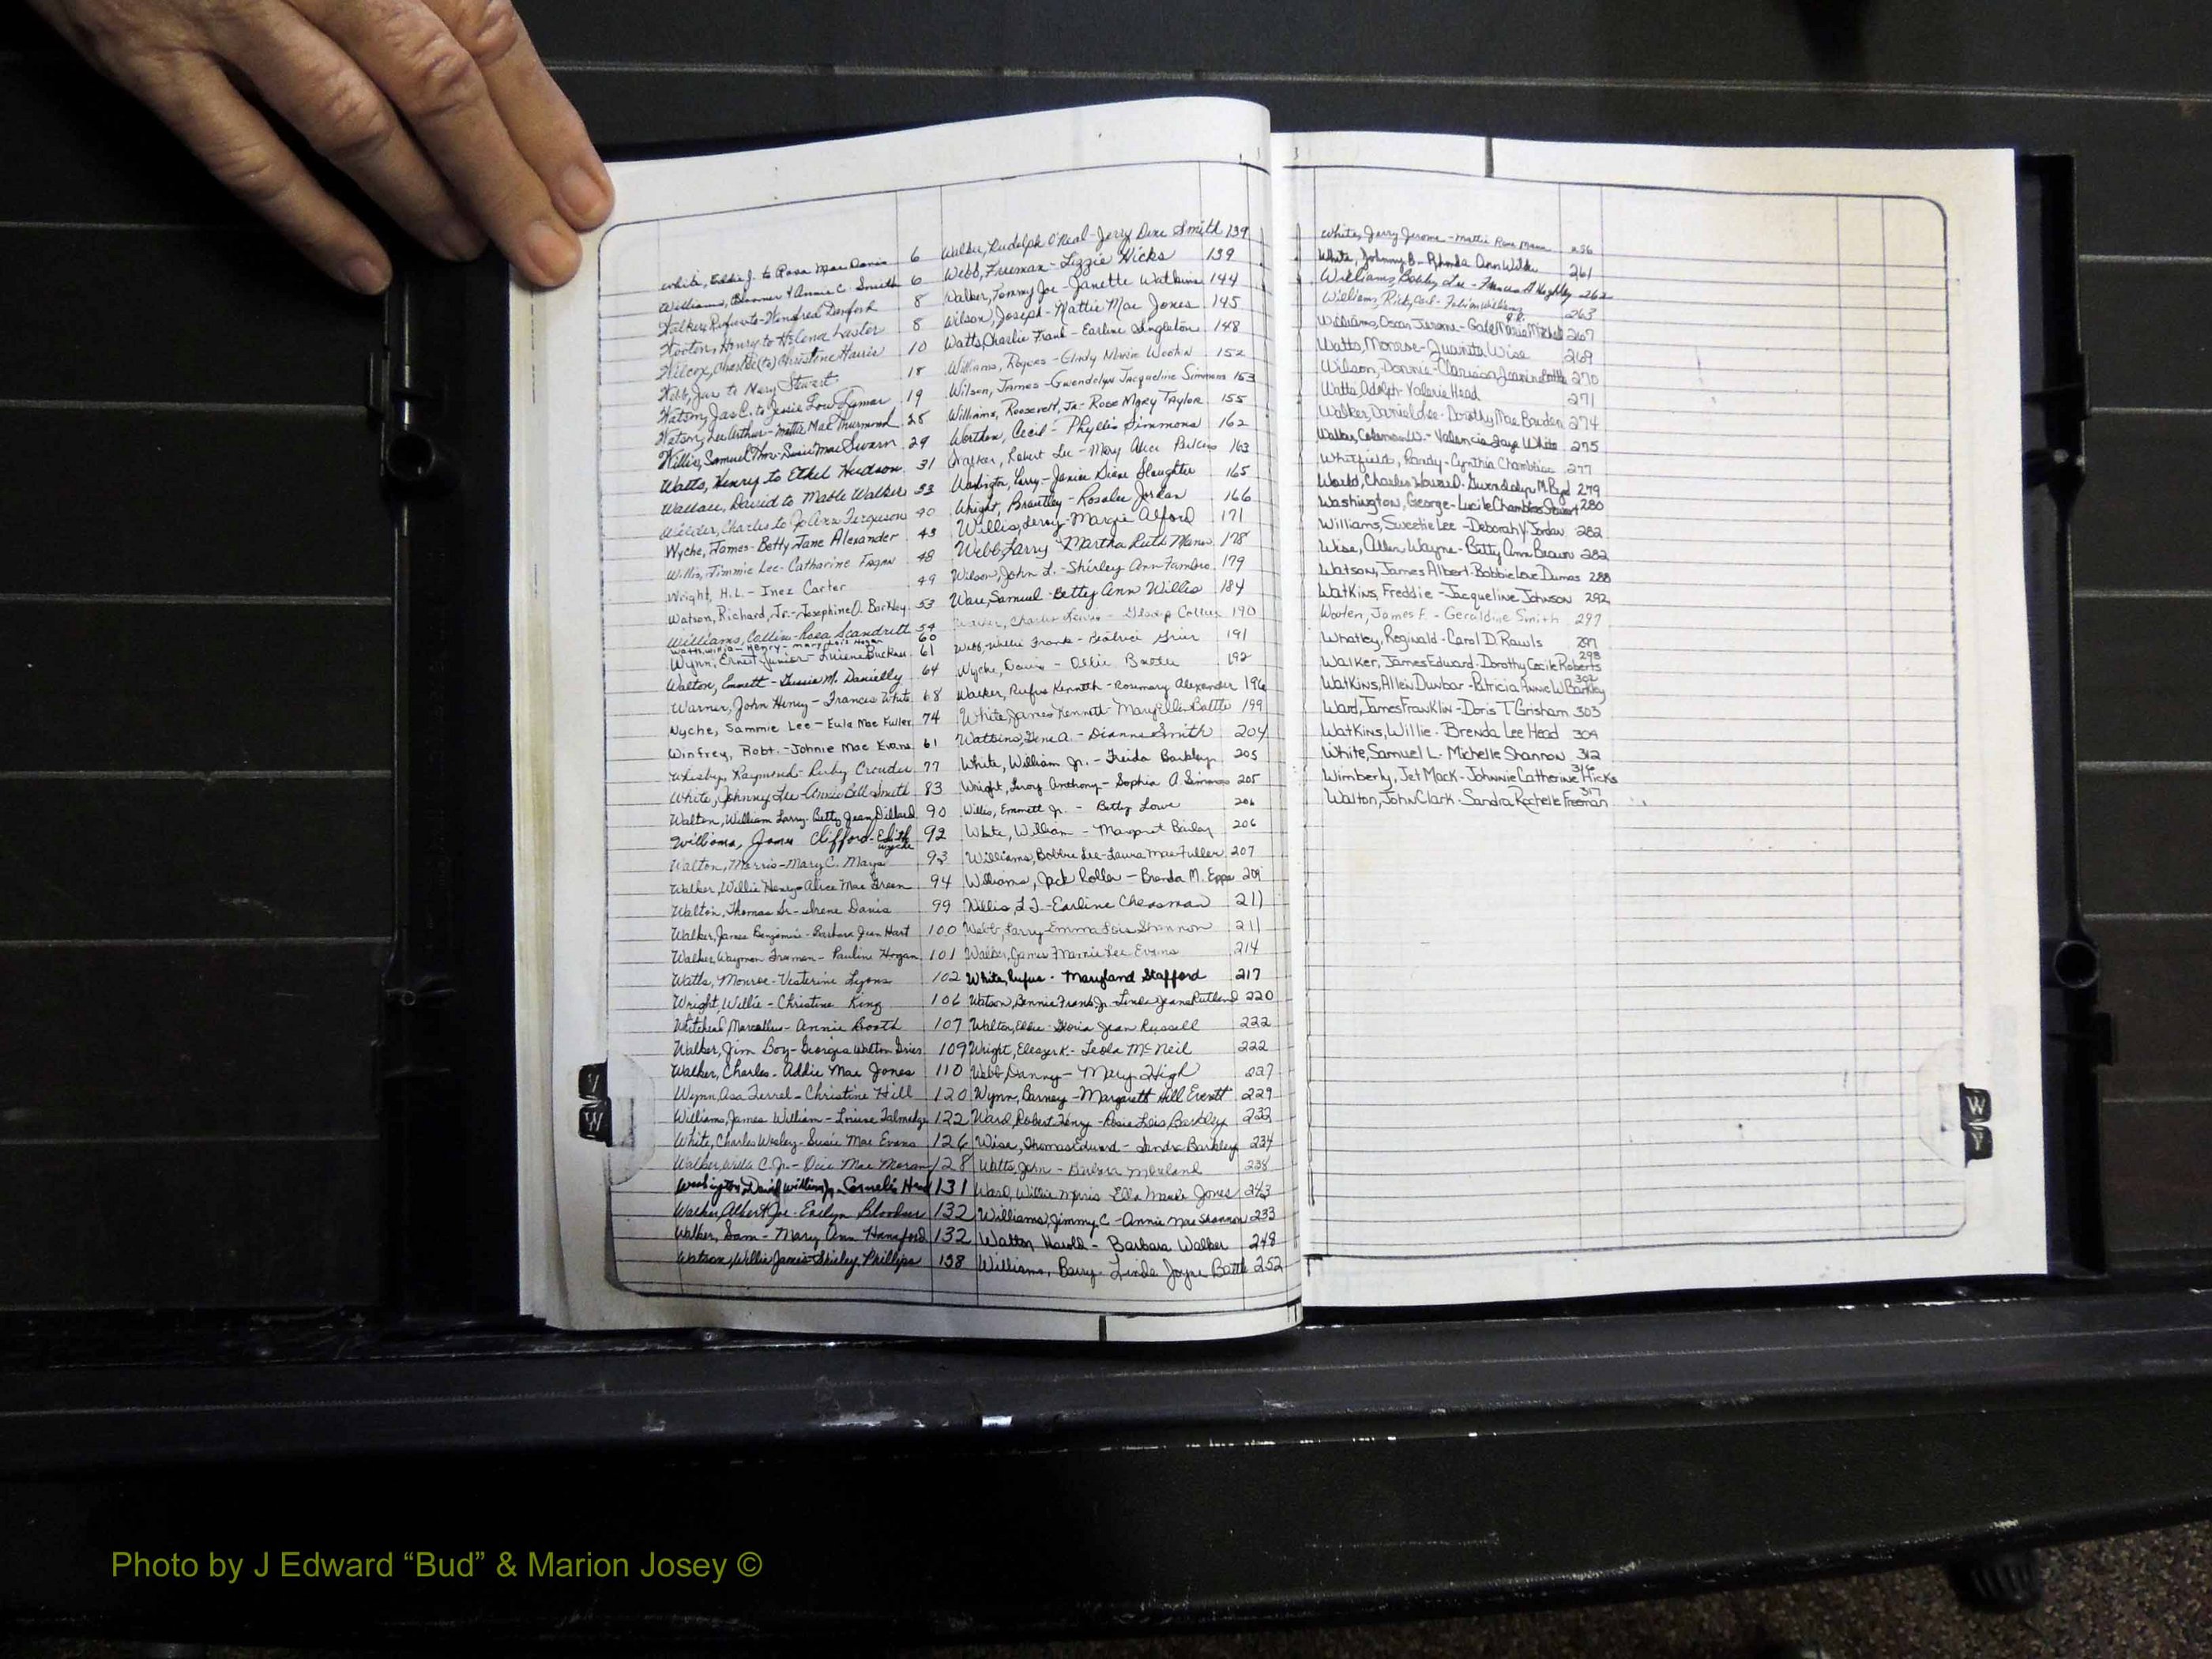 White, Eddie J. to Rosa Mae Davis 6
Williams, & Annie C. Smith 6
Walker, Rufus to Winifred Danforth 8
Wooten, Henry to Helena Lawter 8
Wilcox, Charlie (to) Christine Harris 10
Webb, Jas to Mary Stewart 18
Watson, Jas C. to Jessie Lou Lamar 19
Watson, Lee Arthur - Mattie Mae Thurmond 28
Willis, Samuel Thos - Susie Mae Swann 29
Watts, Henry to Ethel Hudson 31
Wallace, David to Mable Walker 33
Wilder, Charles to Jo Ann Ferguson 40
Wyche, James - Betty Jane Alexander 43
Willis, Jimmie Lee - Catharine Fagan 48
Wright, H.L. - Inez Carter 49
Watson, Richard, Jr. - Josephine O. Barkley 53
Williams, Collin - Rosa Scandritt 54
Henry - Mary Hogan 60
Wynn, Ernest Junior - Buckner 61
Walton, Emmett - Gussie M. Danielly 64
Warner, John Henry - Frances White 68
Wyche, Sammie Lee - Eula Mae Fuller 74
Winfrey, Robt. - Johnie Mae Evans 61
Whisby, Raymond - Ruby Crowder 77
White, Johnny Lee - Annie Bell Smith 83
Walton, William Larry - Betty Jean Dillard 90
Williams, James Clifford - Edith Wyche 92
Walton, Morris - Mary C. Mays 93
Walker, Willie Henry - Alice Mae Green 94
Walton, Thomas Sr - Irene Davis 99
Walker, James Benjamin - Barbara Jean Hart 100
Walker, Waymon Freeman - Pauline Hogan 101
Watts, Monroe - Vesterine Lyons 102
Wright, Willie - Christine King 106
Whitehead, Marcellus - Annie Booth 107
Walker, Jim Boy - Georgia Walton Grier 109
Walker, Charles - Addie Mae Jones 110
Wynn, Asa Terrel - Christine Hill 120
Williams, James William - Louise Talmadge 122
White, Charles Wesley - Susie Mae Evans 126
Walker, Willie C. Jr - Ocie Mae Moran 128
Washington, David William Jr - Cornelia Head 131
Walker, Albert Joe - Evelyn Bloodser 132
Walker, Sam - Mary Ann Hansford 132
Watson, Willie James - Shirley Phillips 138
Walker, Rudolph O'Neal - Jerry Dene Smith 139
Webb, Freeman - Lizzie Hicks 139
Walker, Tommy Joe - Janette Watkins 144
Wilson, Joseph - Mattie Mae Jones 145
Watts, Charlie Frank - Earline Singleton 148
Williams, Rogers - Cindy Marie Wooten 152
Wilson, James - Gwendolyn Jacqueline Simmons 153
Williams, Roosevelt, Jr - Rose Mary Taylor 155
Worthen, Cecil - Phyllis Simmons 162
Walker, Robert Lee - Mary Alice Perkins 163
Washington, Larry - Janice Diane Slaughter 165
Wright, Brantley - Rosalee Jordan 166
Willis, Leroy - Margie Alford 171
Webb, Larry - Martha Ruth Mann 178
Wilson, John L. - Shirley Ann Fambro 179
Ware, Samuel - Betty Ann Willis 184
Walker, Charles Lewis - Gladys Collier 190
Webb, Willie Frank - Beatrice Grier 191
Wyche, Davis - Ollie Battle 192
Walker, Rufus Kenneth - Rosemary Alexander 196
White, James Kenneth - Mary Ellen Battle 199
Watkins, Gene A. - Dianne Smith 204
White, William Jr. - Freida Barkley 205
Wright, Leroy Anthony - Sophia A. Simmons 205
Willis, Emmett Jr. - Betty Lowe 206
White, William - Margaret Bailey 206
Williams, Bobbie Lee - Laura Mae Fuller 207
Williams, Jack Roller - Brenda M. Epps 209
Willis, L J - Earline Cheasman 211
Webb, Larry - Emma Lois Shannon 211
Walker, James - Mamie Lee Evans 214
White, Rufus - Maryland Stafford 217
Watson, Bennie Frank Jr - Linda Jeane Rutland 220
Walton, Eddie - Gloria Jean Russell 222
Wright, Eleazer K. - Leola McNeil 222
Webb, Danny - Mary High 227
Wynn, Barney - Margarett Hill Everett 229
Ward, Robert Henry - Rosie Lois Barkley 232
Wise, Thomas Edward - Sandra Barkley 234
Watts, John - Barbara Moreland 238
Ward, Willie Morris - Ella Maude Jones 243
Williams, Jimmy C - Annie Mae Shannon 233
Walton, Harold - Barbara Walker 248
Williams, Barry - Linda Joyce Battle 252
White, Jerry Jerome - Mattie Mann 256
White, Johnny B - Rhonda Ann Wilder 261
Williams, Bobby Lee - Frances A Highley 262
Williams, Ricky Carl - Williams 263
Williams, Oscar Jerome - Gale Maria Mitchell 267
Watts, Monroe - Juanita Wise 269
Wilson, Donnie - Clarissa Jeanine Battle 270
Watts, Adolph - Valerie Head 271
Walker, Daniel Lee - Dorothy Mae Barden 274
Walker, Coleman W. - Valencia Faye White 275
Whitfield, Randy - Cynthia Chambliss 277
World, Charles Howard - Gwendolyn M. Byrd 279
Washington, George - Lucile Chambliss Stewart 280
Williams, Sweetie Lee - Deborah V. Jordan 282
Wise, Allen Wayne - Betty Ann Brown 282
Watson, James Albert - Bobbie Love Dumas 288
Watkins, Freddie - Jacqueline Johnson 292
Wooten, James F. - Geraldine Smith 297
Whatley, Reginald - Carol D. Rawls 297
Walker, James Edward - Dorothy Cecile Roberts 298
Watkins, Allen Dunbar - Patricia Annie W. Barkley 302
Ward, James Franklin - Doris T. Grisham 303
Watkins, Willie - Brenda Lee Head 309
White, Samuel L. - Michelle Shannon 312
Wimberly, Jet Mack - Johnnie Catherine Hicks 316
Walton, John Clark - Sandra Rochelle Freeman 317
V
W
W
Y
Photo by J Edward “Bud” & Marion Josey ©